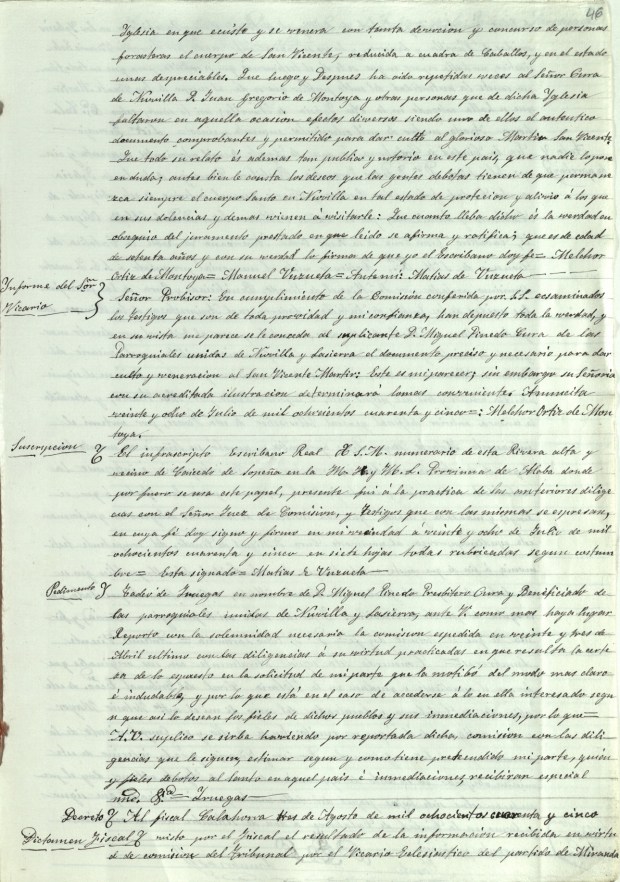 46
Yglesia en que ecsistio y se venera con tanta devocion y concurso de personas
forasteras el cuerpo de San Vicente, reducida a cuadra de Caballos, y en el estado
mas despreciable. Que luego y Despues ha oido repetidas veces al Señor Cura
de Nuvilla D. Juan Gregorio de Montoya y otras personas que de dicha Yglesia
faltaron en aquella ocasion efectos diversos siendo uno de ellos el autentico
documento comprobantes y permitido para dar culto al glorioso Martir San Vicente.
Que todo su relato és ademas tam publico y notorio en este pais, que nadie lo pone
en duda; antes bien le consta los deseos que las gentes debotas tienen de que permane
zca siempre el cuerpo Santo en Nuvilla en tal estado de protecion y alivio á los que
en sus dolencias y demas vienen a visitarle: Que cuanto lleba dicho és la verdad en
obsequio del juramento prestado en que leido se afirma y ratifica; que es de edad
de setenta años y con su merced lo firma de que yo el Escribano doy fe = Melchor
Ortiz de Montoya = Manuel Vrzueta = Antemi: Matias de Vrzueta
Informe del Sōr
Vicario
Señor Probisor: En cumplimiento de la Comisión conferida por S.S. ecsaminados
los testigos que son de toda providad y mi confianza, han depuesto toda la verdad, y
en su vista me parece se le conceda al suplicante D. Miguel Pinedo Cura de las
Parroquiales unidas de Nuvilla y Lasierra el documento preciso y necesario para dar
culto y veneracion al San Vicente Martir: Este es mi parecer; sin embargo su Señoria
con su acreditada ilustracion determinará lo mas conveniente. Anuncita
veinte y ocho de Julio de mil ochocientos cuarenta y cinco =: Melchor Ortiz de Mon
toya.
Suscrypcion
El infrascripto Escribano Real de S.M. numerario de esta Rivera alta y
vecino de Caicedo de Sopeña en la M. N. y M. L. Provincia de Alaba donde
por fuero se usa este papel, presente fui á la practica de las anteriores dilige
cias con el Señor Juez de Comision, y testigos que con las mismas se espresan,
en cuya fé doy signo y firmo en mi vecindad á veinte y ocho de Julio de mil
ochocientos cuarenta y cinco en siete hojas todas rubricadas segun costum
bre = Esta signado = Matias de Vrzueta
Pedimento
Tadeo de Yruegas en nombre de D. Miguel Pinedo Presbitero Cura y Beneficiado de
las parroquiales unidas de Nuvilla y Lasierra, ante V. como mas haya lugar
Reporto con la solemnidad necesaria la comision espedida en veinte y tres de
Abril ultimo con las diligencias á su virtud practicadas en que resulta la certe
za de lo espuesto en la solicitud de mi parte que la motibó del modo mas claro
é indudable, y por lo que está en el caso de accederse á lo en ella interesado segu
n que asi lo desean los fieles de dichos pueblos y sus inmediaciones, por lo que =
A. V. suplico se sirba haviendo por reportada dicha comision con las dili
gencias que le siguen, estimar segun y como tiene pretendido mi parte, quién
y fieles debotos al Santo en aquel pais é inmediaciones, recibiran especial
mrd. &ca = Yruegas
Decreto
Al fiscal Calahorra tres de Agosto de mil ochocientos cuarenta y cinco
Dictamen fiscal
Visto por el Fiscal el resultado de la informacion recibida en virtu
d de comision del Tribunal por el Vicario Eclesiastico del partido de Miranda